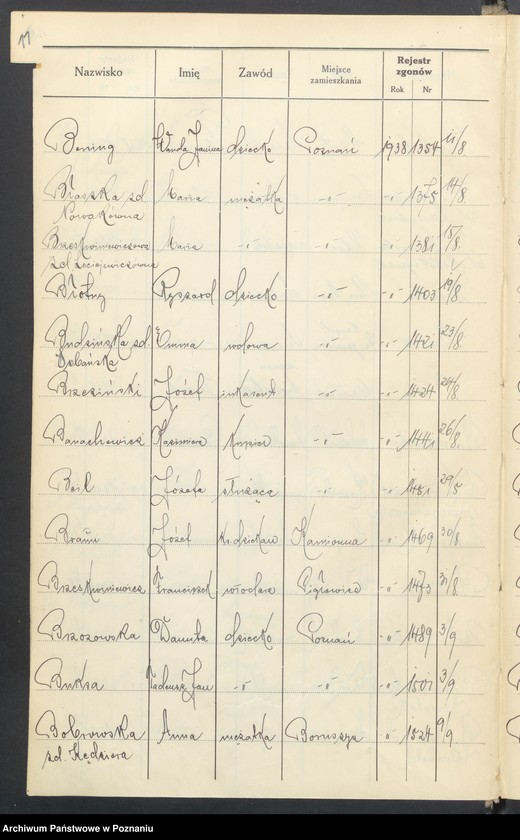 11
Nazwisko Imię Zawód Miejsce zamieszkania Rejestr zgonów
Rok Nr
Bening Wanda Janina dziecko Poznań 1938 1354 11/8
Błaszka zd. Maria mężatka -"- -"- 1375 14/8
Nowakówna
Brzeskwiniewiczowa Maria -"- -"- -"- 1381 18/8
zd.
Błotny Ryszard dziecko -"- -"- 1403 19/8
Budzińska zd. Emma wdowa -"- -"- 1421 23/8
Urbańska
Brzeziński Józef inkasent -"- -"- 1424 24/8
Banachowicz Kazimierz kupiec -"- -"- 1441 26/8
Beil Józefa służąca -"- -"- 1451
Józef Kamionna -"- 1469 30/8
Brzeskwiniewicz Franciszek włodarz -"- 1473 31/8
Brzozowska Danuta dziecko Poznań -"- 1489 3/9
Buksa Tadeusz Jan -"- -"- -"- 1501 3/9
Bobrowska Anna mężatka -"- 1524 9/9
zd. Kędziora
Archiwum Państwowe w Poznaniu